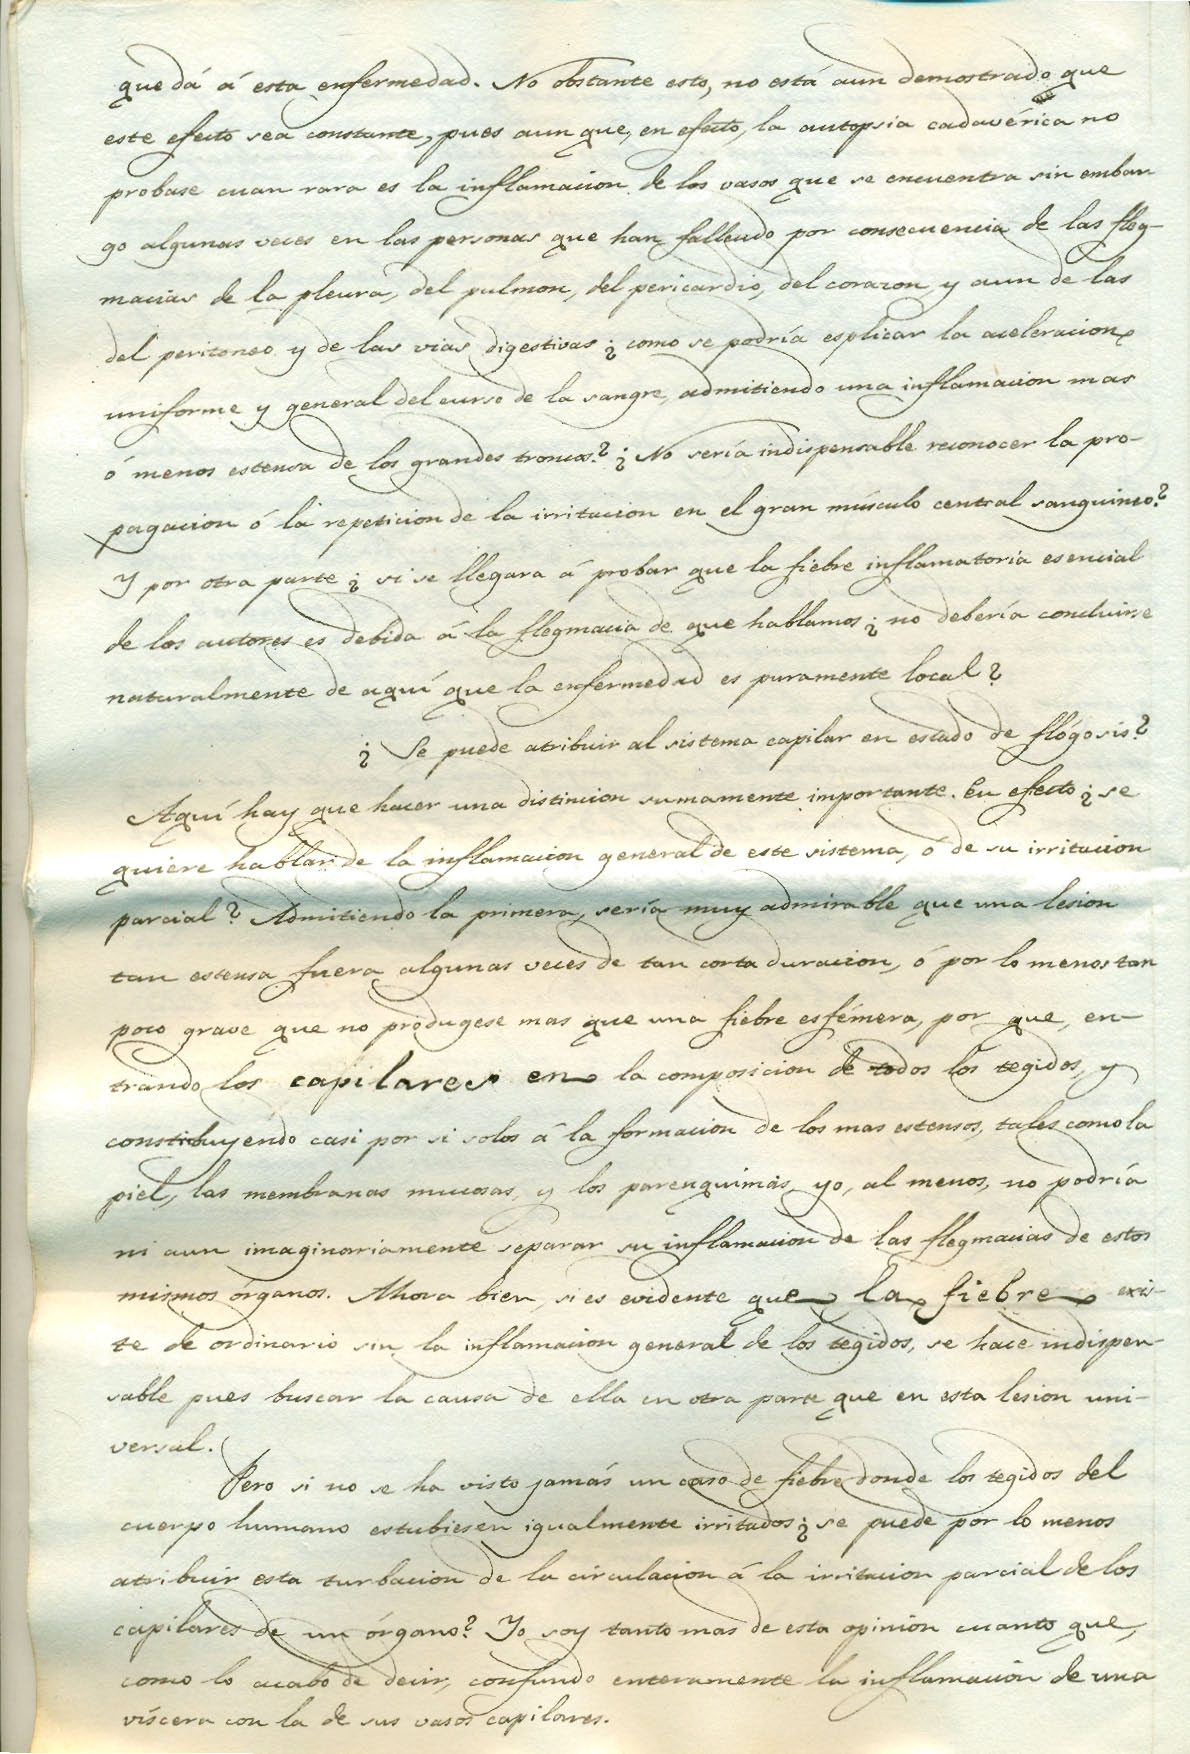 que dá á esta enfermedad. No obstante esto, no está aun demostrado que
este efecto sea constante, pues aun que, en efecto, la autopsia cadavérica no
probase cuan rara es la inflamacion de los vasos que se encuentra sin embar
go algunas veces en las personas que han fallecido por consecuencia de las fleg-
macias de la pleura, del pulmon, del pericardio, del corazon, y aun de las
del peritoneo y de las vias digestivas ¿ como se podría esplicar la aceleracion
uniforme y general del curso de la sangre, admitiendo una inflamacion mas
ó menos estensa de los grandes troncos? ¿ No sería indispensable reconocer la pro-
pagacion ó la repeticion de la irritacion en el gran músculo central sanguineo?
Y por otra parte ¿ si se llegara á probar que la fiebre inflamatoria esencial
de los autores es debida á la flegmacia de que hablamos ¿ no debería concluirse
naturalmente de aquí que la enfermedad es puramente local?
¿ Se puede atribuir al sistema capilar en estado de flógosis?
Aquí hay que hacer una distincion sumamente importante. En efecto ¿ se
quiere hablar de la inflamacion general de este sistema, ó de su irritacion
parcial? Admitiendo la primera, sería muy admirable que una lesion
tan estensa fuera algunas veces de tan corta duracion, ó por lo menos tan
poco grave que no produgese mas que una fiebre esfémera, por que, en-
trando los capilares en la composicion de todos los tegidos, y
constribuyendo casi por si solos á la formacion de los mas estensos, tales como la
piel, las membranas mucosas, y los parenquimas, yo, al menos, no podría
ni aun imaginariamente separar su inflamacion de las flegmacias de estos
mismos órganos. Ahora bien, si es evidente que la fiebre exis-
te de ordinario sin la inflamacion general de los tegidos, se hace indispen-
sable pues buscar la causa de ella en otra parte que en esta lesion uni-
versal.
Pero si no se ha visto jamás un caso de fiebre donde los tegidos del
cuerpo humano estubiesen igualmente irritados ¿ se puede por lo menos
atribuir esta turbacion de la circulacion á la irritacion parcial de los
capilares de un órgano? Yo soy tanto mas de esta opinion cuanto que,
como lo acabo de decir, confundo enteramente la inflamacion de una
víscera con la de sus vasos capilares.